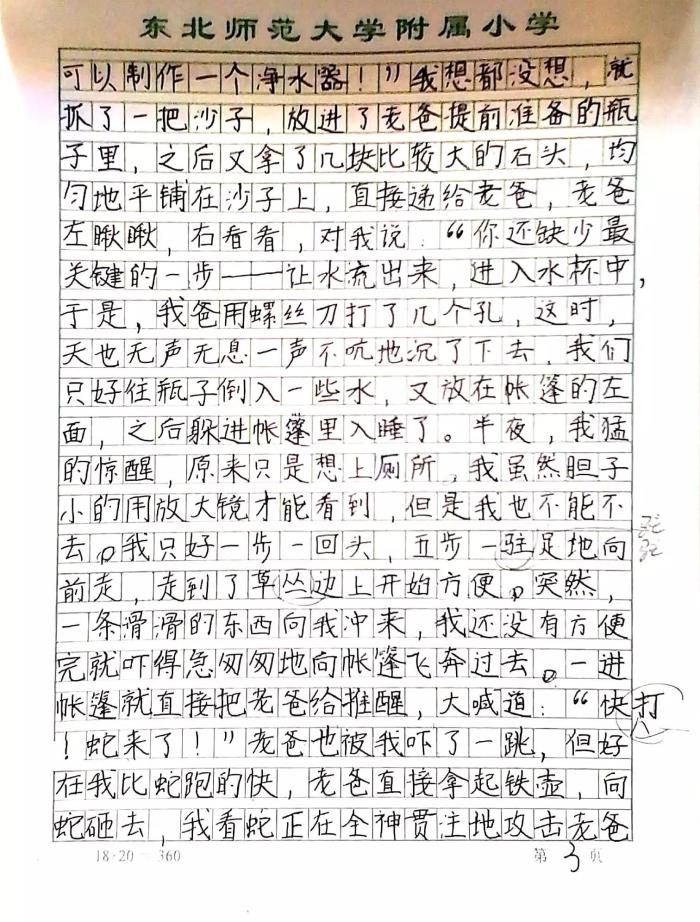 东北师范大学附属小学
可以制作一个净水器！”我想都没想，就
抓了一把沙子，放进了老爸提前准备的瓶
子里，之后又拿了几块比较大的石头，均
匀地平铺在沙子上，直接递给老爸，老爸
左瞅瞅，右看看，对我说：“你还缺少最
关键的一步——让水流出来，进入水杯中，
于是，我爸用螺丝刀打了几个孔，这时，
天也无声无息一声不吭地沉了下去，我们
只好住瓶子倒入一些水，又放在帐篷的左
面，之后躲进帐篷里入睡了。半夜，我猛
的惊醒，原来只是想上厕所，我虽然胆子
小的用放大镜才能看到，但是我也不能不
去。我只好一步一回头，五步一驻足地向
前走，走到了草丛边上开始方便。突然，
一条滑滑的东西向我冲来，我还没有方便
完就吓得急匆匆地向帐篷飞奔过去。一进
帐篷就直接把老爸给推醒，大喊道：“快打
！蛇来了！”老爸也被我吓了一跳，但好
在我比蛇跑的快，老爸直接拿起铁壶，向
蛇砸去，我看蛇正在全神贯注地攻击老爸
18×20＝360
第3页